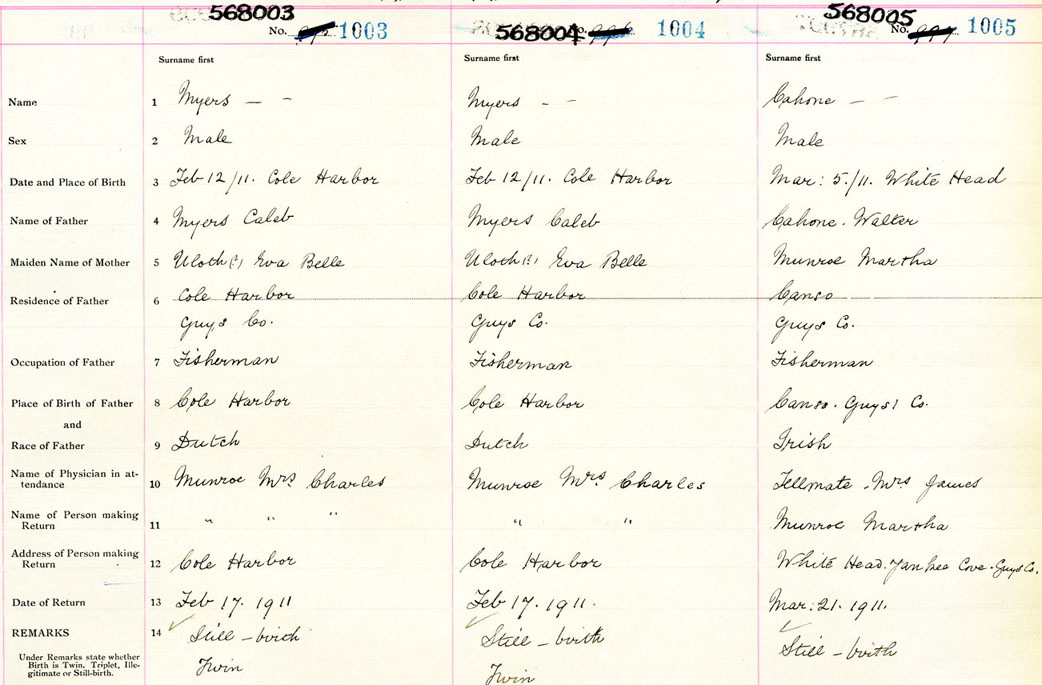 568003 568004 568005
No. 995 1003 No. 996 1004 No. 997 1005
Surname first Surname first Surname first
Name 1 Myers — - Myers - - Cahone — -
Sex 2 Male Male Male
Date and Place of Birth 3 Feb 12/11. Cole Harbor Feb 12/11. Cole Harbor Mar: 5./11. White Head
Name of Father 4 Myers Caleb Myers Caleb Cahone. Walter
Maiden Name of Mother 5 Uloth(?) Eva Belle Uloth(?) Eva Belle Munroe Martha
Residence of Father 6 Cole Harbor Cole Harbor Canso
Guys Co. Guys Co. Guys Co.
Occupation of Father 7 Fisherman Fisherman Fisherman
Place of Birth of Father 8 Cole Harbor Cole Harbor Canso. Guys' Co.
and
Race of Father 9 Dutch Dutch Irish
Name of Physician in at-
tendance 10 Munroe Mrs Charles Munroe Mrs Charles Fellmate. Mrs James
Name of Person making
Return 11 " " " " " Munroe Martha
Address of Person making
Return 12 Cole Harbor Cole Harbor White Head. Yankee Cove. Guys Co.
Date of Return 13 Feb 17. 1911 Feb 17. 1911. Mar: 21. 1911.
REMARKS 14 Still-birth Still-birth Still-birth
Under Remarks state whether
Birth is Twin, Triplet, Ille-
gitimate or Still-birth.
Twin Twin